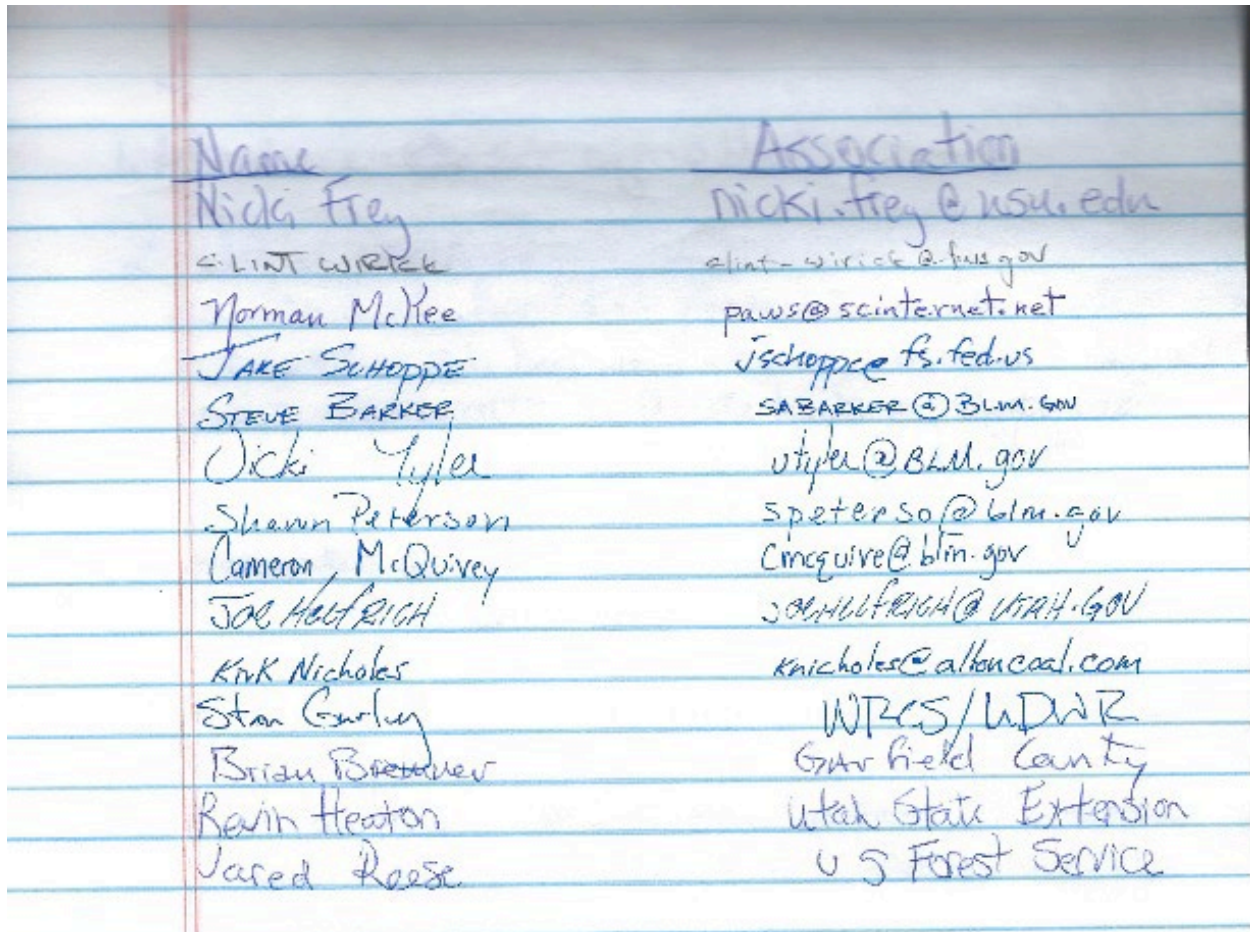 Name Association
Nicki Frey nicki.frey@usu.edu
CLINT WIRICK clint-wirick@fws.gov
Norman McKee paws@scinternet.net
JAKE SCHOPPE jschoppe@fs.fed.us
STEVE BARKER SABARKER@BLM.GOV
Vicki Tyler vtyler@BLM.gov
Shawn Peterson speterso@blm.gov
Cameron McQuivey cmcquive@blm.gov
JOE HELFRICH JOEHELFRICH@UTAH.GOV
Kirk Nicholes knicholes@altoncoal.com
Stan Gurley
Brian Bremner Garfield County
Kevin Heaton Utah State Extension
Jared Reese US Forest Service